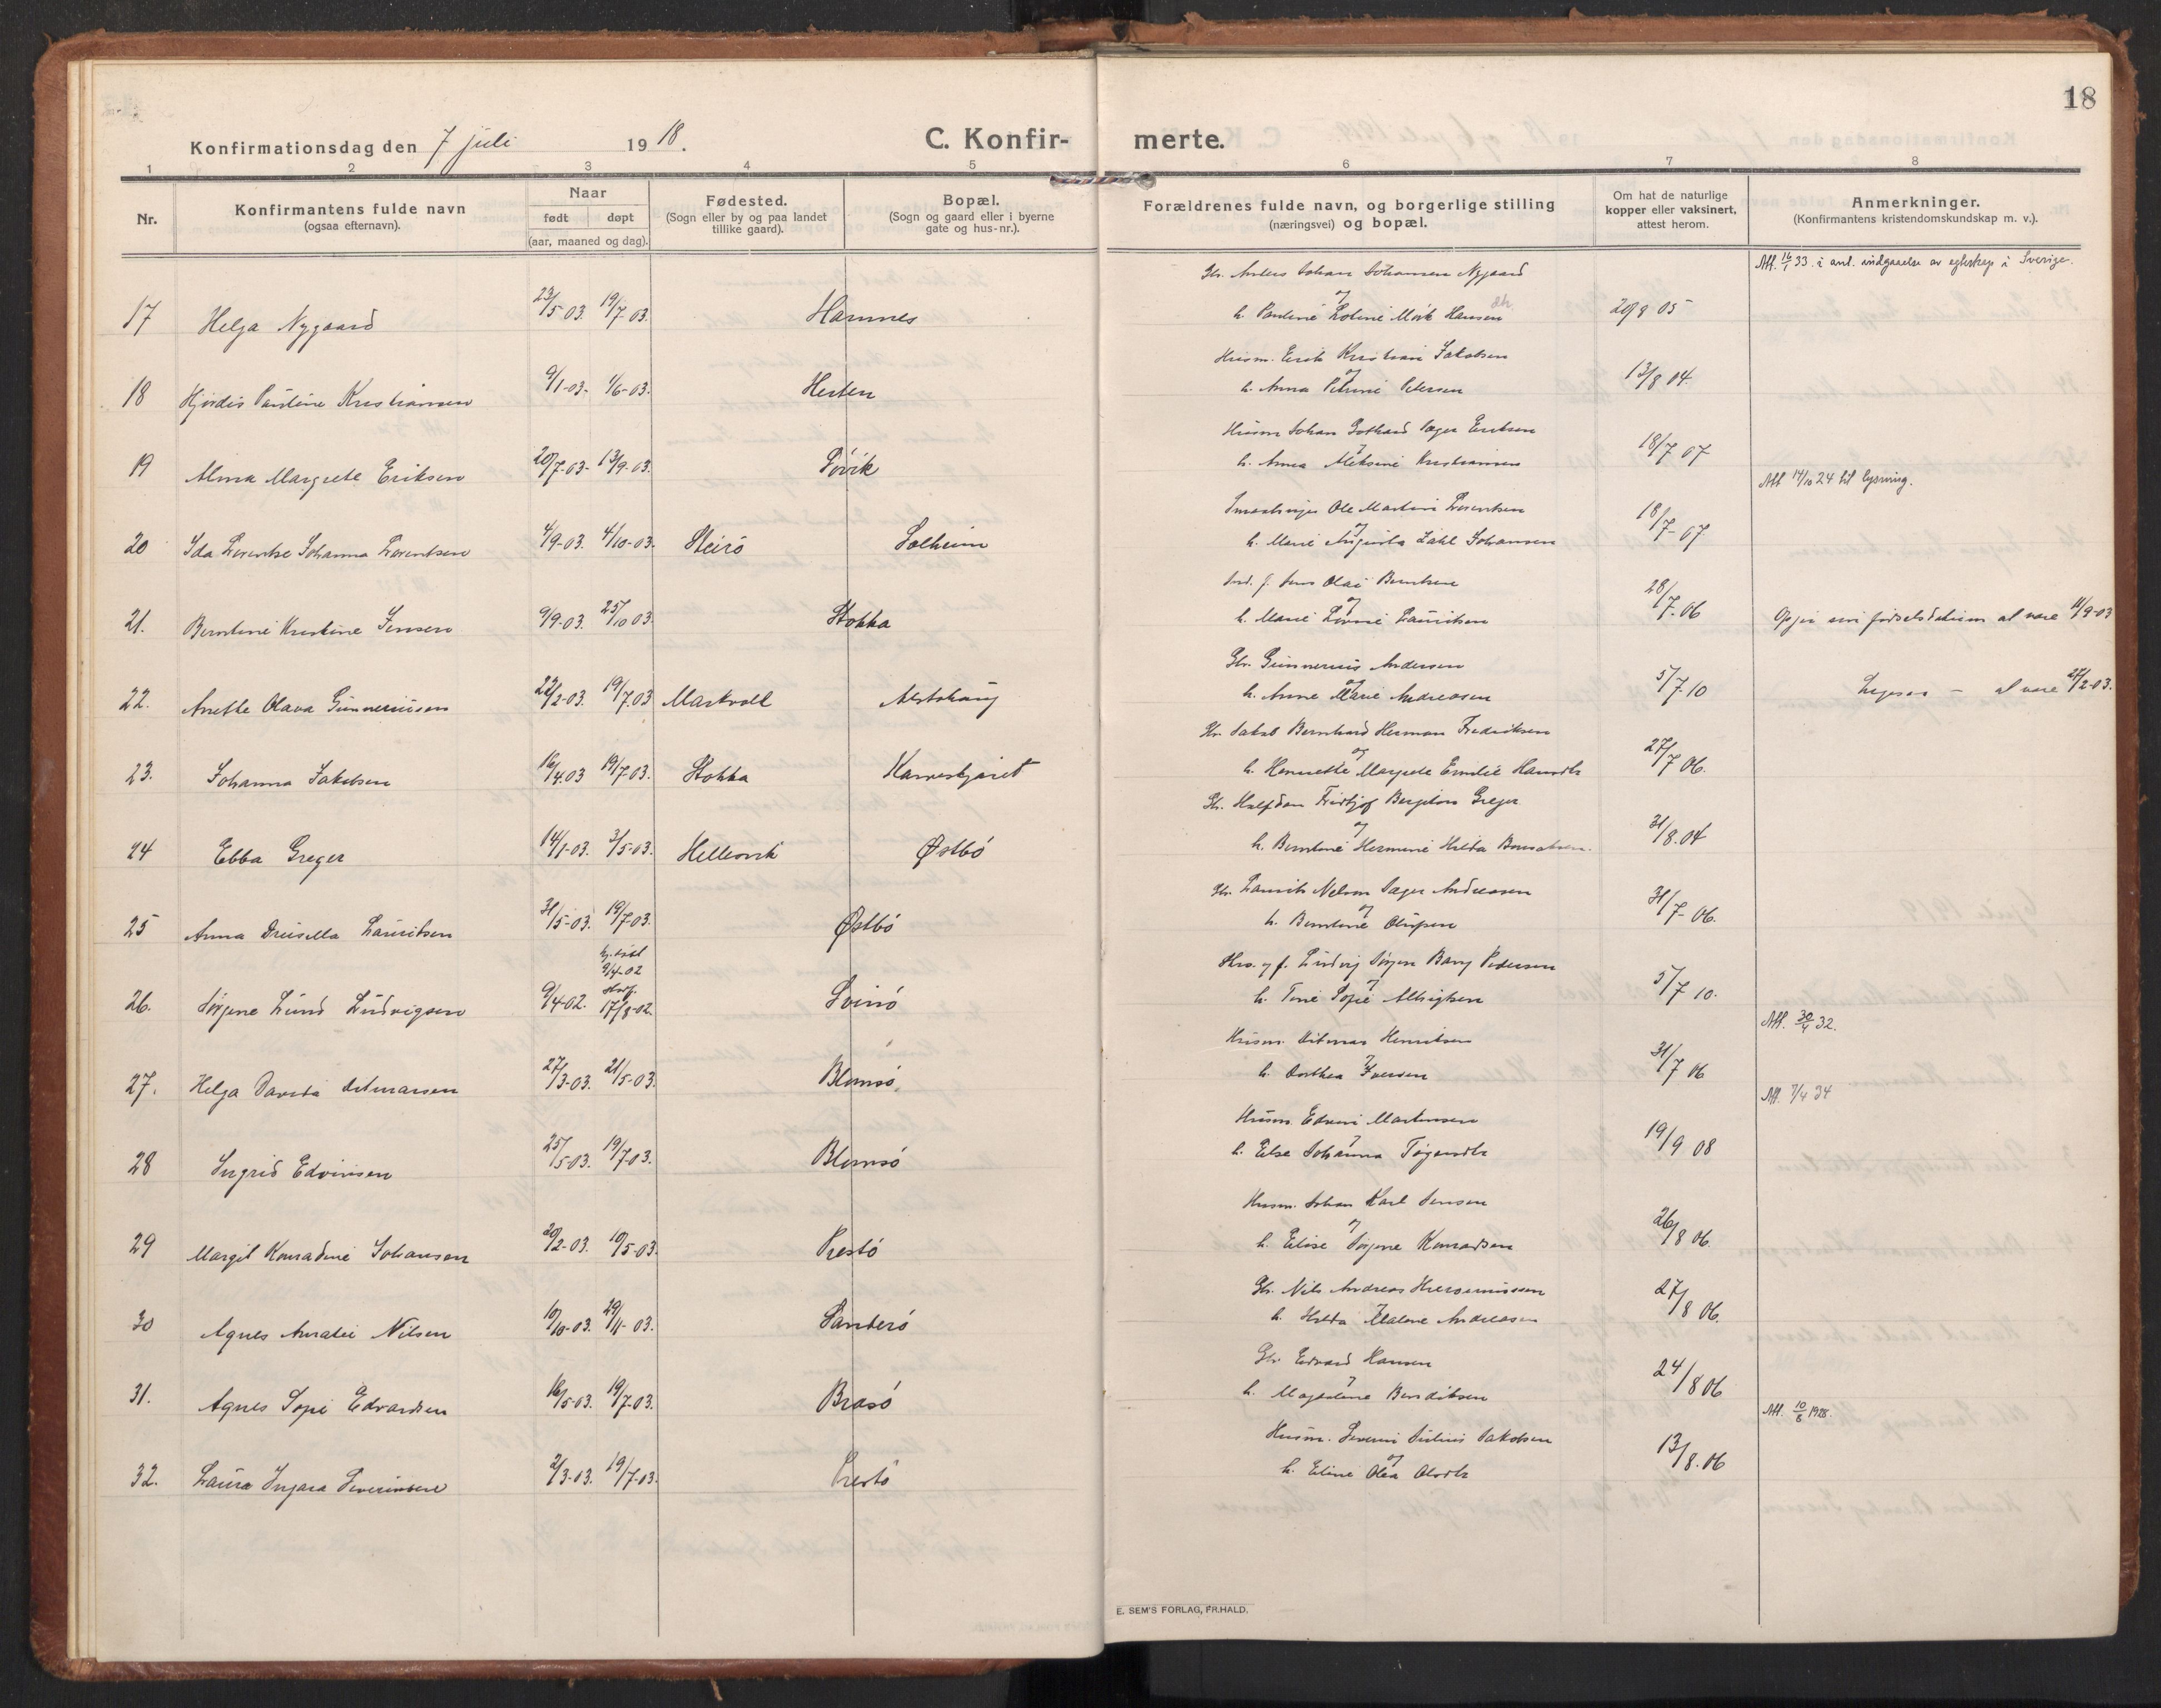 18
Konfirmationsdag den 7 juli 1918.
C. Konfir- merte.
1 2 3 4 5 6 7 8
Nr.
Konfirmantens fulde navn
(ogsaa efternavn).
Naar
født døpt
(aar, maaned og dag).
Fødested.
(Sogn eller by og paa landet
tillike gaard).
Bopæl.
(Sogn og gaard eller i byerne
gate og hus-nr.).
Forældrenes fulde navn, og borgerlige stilling
(næringsvei) og bopæl.
Om hat de naturlige
kopper eller vaksinert,
attest herom.
Anmerkninger.
(Konfirmantens kristendomskundskap m. v.).
Gbr. Anders Johan Johansen Nygaard
Att. 16/1 33. i anl. indgaaelse av egteskap i Sverige.
og
17 Helga Nygaard 23/5-03. 19/7-03. Hamnes
h. Pauline Lovine Mörk Hansen 20/8 05
Husm. Erik Kristian Jakobsen
og
18 Hjördis Pauline Kristiansen 9/1-03- 1/6-03. Hesten
h. Anna Petrine Petersen 13/8 04.
Husm Johan Gothard Jæger Eriksen
19 Alma Margrete Eriksen 20/7-03- 13/9-03.
h. Anna Kristiansen 18/7 07
Att 14/10 24 til lysning.
Ole Martin Lorentsen
og
20 Ida Lorentse Johanna Lorentsen 4/9-03. 4/10-03. Steirö Solheim
h. Marie Augusta Zahl Johansen 18/7-07
Jens Olai Berntsen
og
21. Berntine Kristine Jensen 9/9-03. 25/10 03. Stokka
h. Marie Lovine Lauritsen 28/7-06
Opgir sin fødselsdatum at være 11/9-03
Gbr. Gunnerius Andersen
og
22. Anette Olava Gunneriusen 22/2-03. 19/7.03 Markvoll Alstahaug
h. Anne Marie Andreasen 5/7-10
Ligesaa – at være 27/2-03.
Gbr. Jakob Bernhard Herman Fredriksen
og
23. Johanna Jakobsen 16/4.03 19/7-03. Stokka
h. Henriette Margrete Emilie Hansdtr 27/7 06.
Gbr. Halfdan Fridtjof Bergiton Greger
og
24 Ebba Greger 14/1-03. 3/5-03. Hellesvik Østbö
h. Berntine Hermine Hilda 31/8.04
Gbr. Laurits Nelson Jæger Andreasen
og
25 Anna Drusella Lauritsen 31/5-03. 19/7-03. Østbö
h. Berntine 31/7-06.
hj. döbt
9/4-02
Ludvig Jörgen Bang Pedersen
26. Jörgine Lund Ludvigsen 9/4-02. 17/8-02. Svinö
h. Tine Sofie 5/7 10.
Att. 30/4 32.
Husm. Ditmar Henriksen
27. Helga Davida Ditmarsen 27/3-03. 21/5-03. Blomsö.
h. Dorthea Iversen 31/7 06
Att. 7/4 34
Husm. Edvin Martinsen
28 Ingrid Edvinsen 25/5-03. 19/7-03. Blomsö
h. Else Johanna 19/9 08
Husm. Johan Karl Jensen
og
29 Margit Konradine Johansen 20/2-03. 10/5-03. Prestö
h. Elise Jörgine Konradsen 26/8 06.
Gbr. Nils Andreas Hieronimussen
30 Agnes Amalie Nilsen 10/10-03. 29/11-03. Sanderö
h. Hilda Malene Andreasen 27/8 06.
Gbr. Edvard Hansen
31. Agnes Sofie Edvardsen 16/5-03. 19/7-03. Brasö
h. Magdalena Bendiksen 24/8 06
Att. 10/8 1928.
Husm. Severin Julius Jakobsen
og
32. Laura Ingara Severinsen 2/3-03. 19/7-03. Prestö
h. Eline Olea Olsdtr 13/8.06
E. SEM'S FORLAG, FR.HALD.